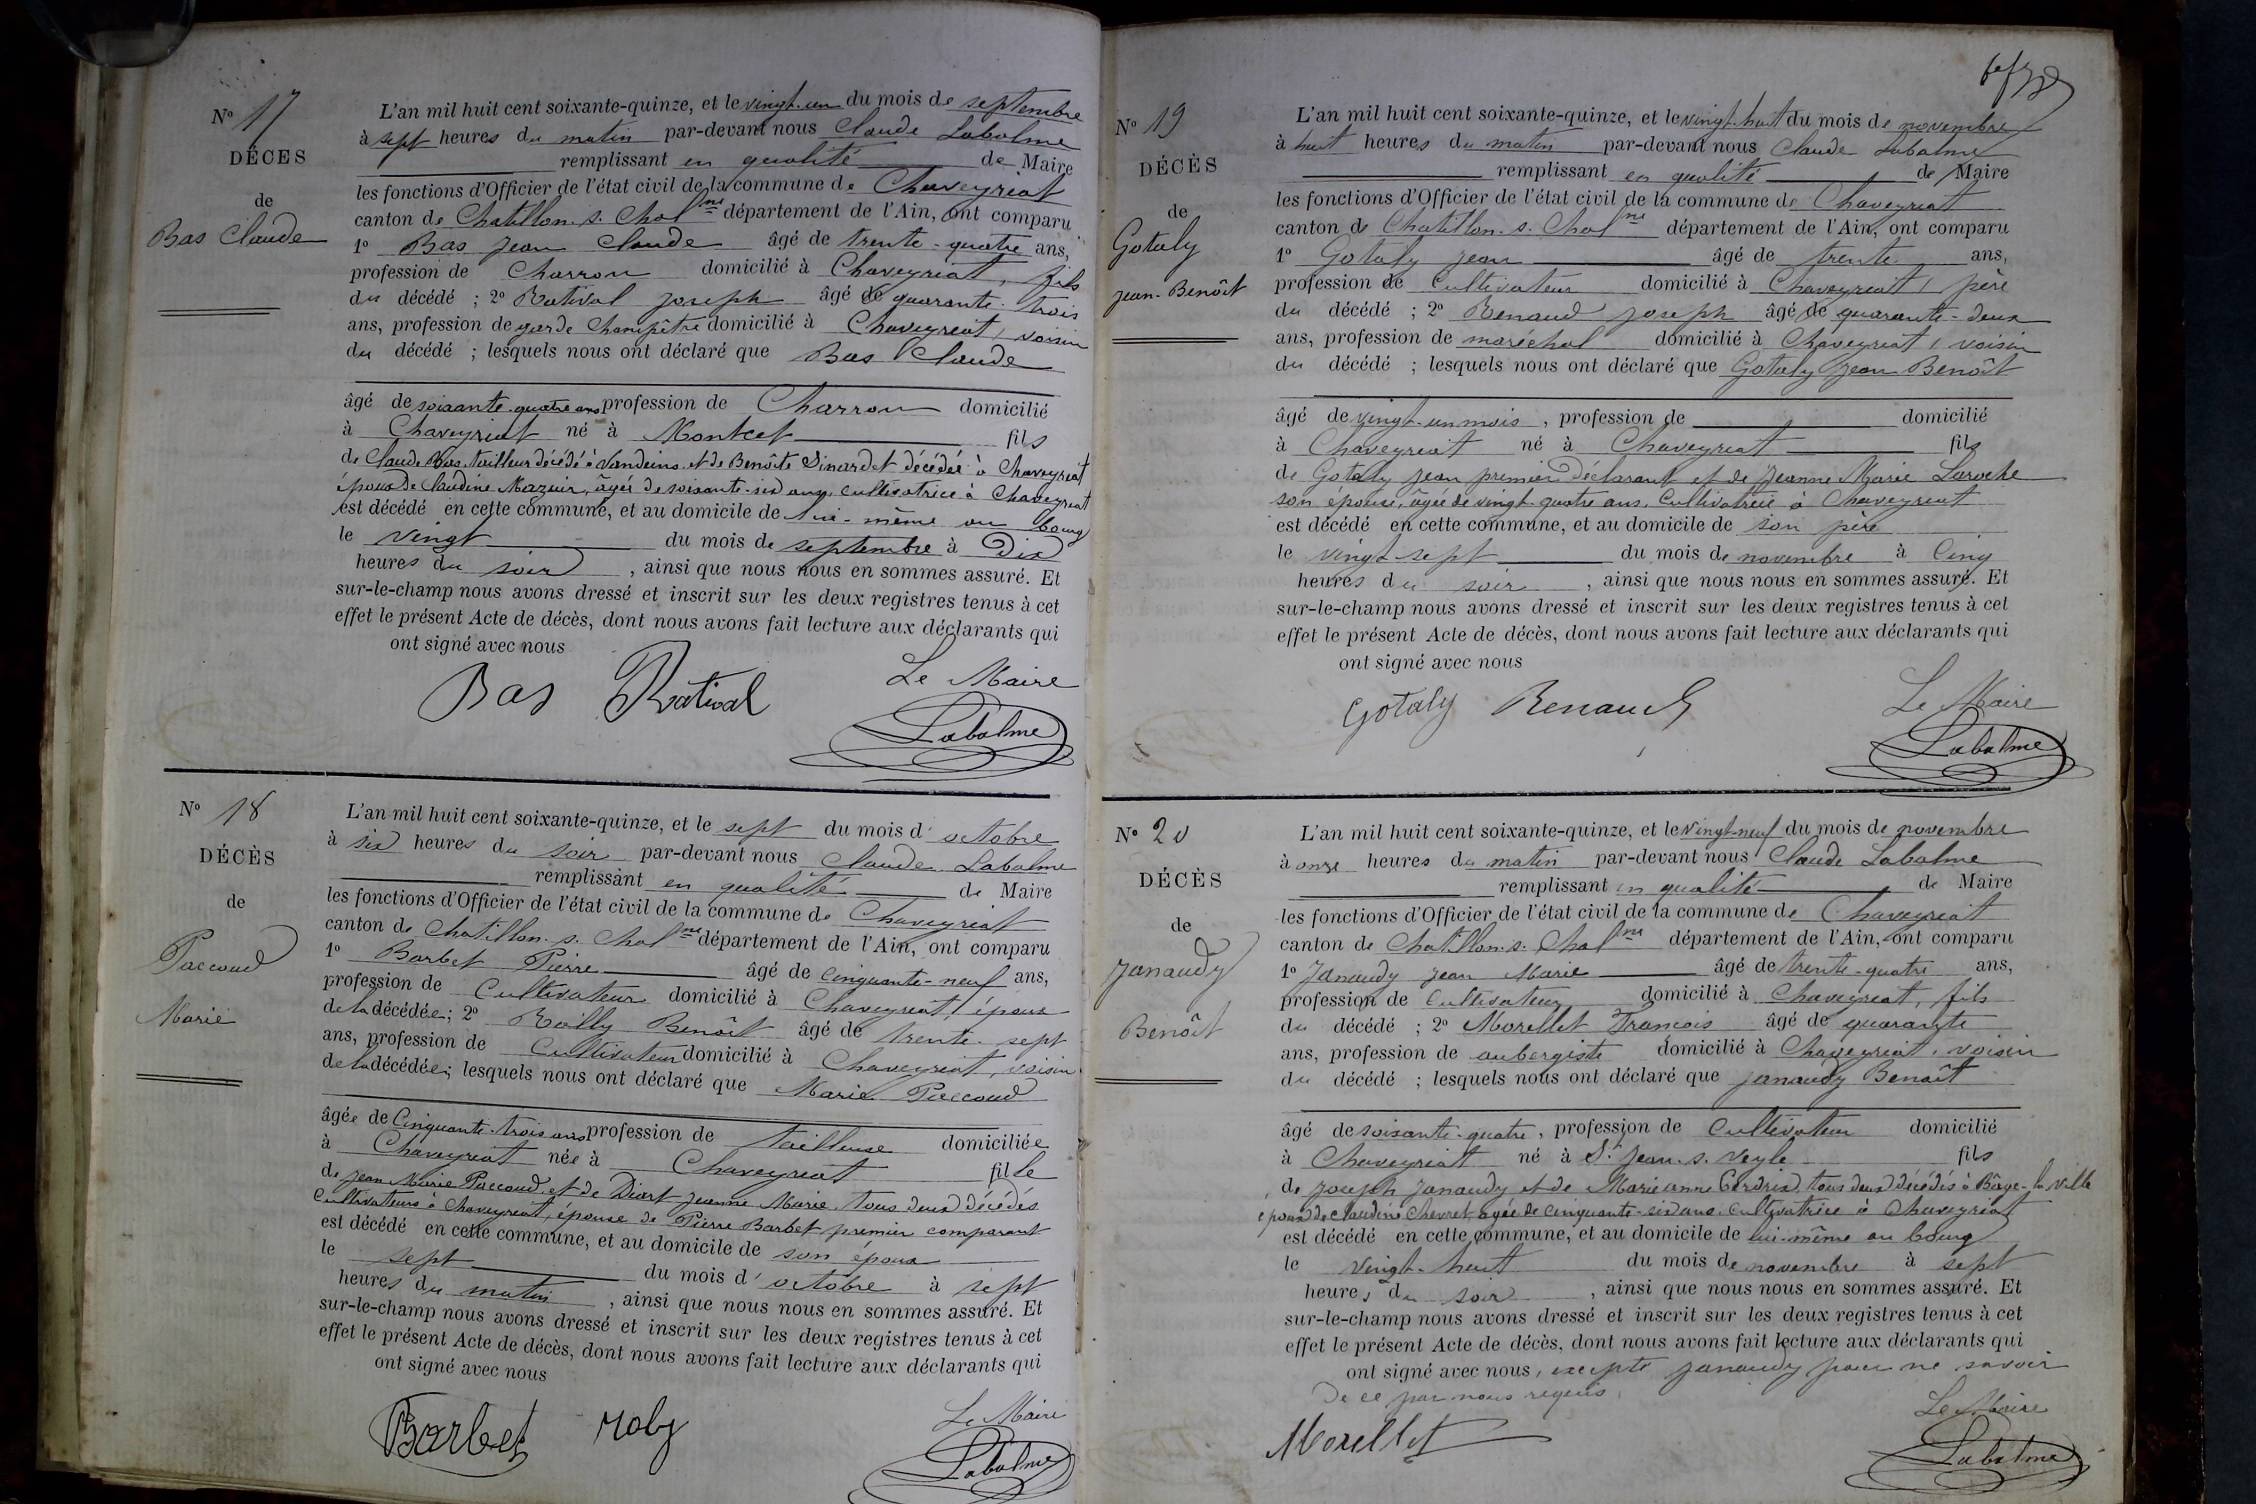 N° 17
DÉCES
de
Bas Claude
L'an mil huit cent soixante-quinze, et le vingt-un du mois de septembre
à sept heures du matin par-devant nous Claude Labalme
remplissant en qualité de Maire
les fonctions d'Officier de l'état civil de la commune de Chaveyriat
canton de Chatillon-s-Chalne département de l'Ain, ont comparu
1° Bas Jean Claude âgé de trente-quatre ans,
profession de Charron domicilié à Chaveyriat, fils
du décédé ; 2° Ratival Joseph âgé de quarante-trois
ans, profession de garde champêtre domicilié à Chaveyriat, voisin
du décédé ; lesquels nous ont déclaré que Bas Claude
âgé de soixante-quatre ans profession de Charron domicilié
à Chaveyriat né à Montcet fils
de Claude Bas, tailleur décédé à Vandeins et de Benôite Sinardet décédée à Chaveyriat
époux de Claudine Mazuir, âgée de soixante-six ans, cultivatrice à Chaveyriat
est décédé en cette commune, et au domicile de lui-même au bourg
le vingt du mois de septembre à Dix
heures du soir, ainsi que nous nous en sommes assuré. Et
sur-le-champ nous avons dressé et inscrit sur les deux registres tenus à cet
effet le présent Acte de décès, dont nous avons fait lecture aux déclarants qui
ont signé avec nous
Le Maire
Bas Ratival
Labalme
N° 18
DÉCÈS
de
Paccoud
Marie
L'an mil huit cent soixante-quinze, et le sept du mois d'octobre
à six heures du soir par-devant nous Claude Labalme
remplissant en qualité de Maire
les fonctions d'Officier de l'état civil de la commune de Chaveyriat
canton de Chatillon-s-Chalne département de l'Ain, ont comparu
1° Barbet Pierre âgé de cinquante-neuf ans,
profession de Cultivateur domicilié à Chaveyriat, époux
de la décédée; 2° Robly Benôit âgé de trente-sept
ans, profession de Cultivateur domicilié à Chaveyriat, voisin
de la décédée; lesquels nous ont déclaré que Marie Paccoud
âgée de Cinquante-trois ans profession de tailleuse domiciliée
à Chaveyriat née à Chaveyriat fille
de Jean Marie Paccoud et de Diart Jeanne Marie tous deux décédés
Cultivateurs à Chaveyriat, épouse de Pierre Barbet premier comparant
est décédé en cette commune, et au domicile de son époux
le sept du mois d'octobre à sept
heures du matin, ainsi que nous nous en sommes assuré. Et
sur-le-champ nous avons dressé et inscrit sur les deux registres tenus à cet
effet le présent Acte de décès, dont nous avons fait lecture aux déclarants qui
ont signé avec nous
Le Maire
Barbet Robly
Labalme
N° 19
DÉCÈS
de
Gotaly
Jean-Benôit
L'an mil huit cent soixante-quinze, et le vingt-huit du mois de novembre
à huit heures du matin par-devant nous Claude Labalme
remplissant en qualité de Maire
les fonctions d'Officier de l'état civil de la commune de Chaveyriat
canton de Chatillon-s-Chalne département de l'Ain, ont comparu
1° Gotaly Jean âgé de trente ans,
profession de Cultivateur domicilié à Chaveyriat, père
du décédé ; 2° Renaud Joseph âgé de quarante-deux
ans, profession de maréchal domicilié à Chaveyriat, voisin
du décédé ; lesquels nous ont déclaré que Gotaly Jean Benôit
âgé de vingt-un mois, profession de domicilié
à Chaveyriat né à Chaveyriat fils
de Gotaly Jean premier déclarant et de Jeanne Marie Laroche
son épouse, âgée de vingt-quatre ans, Cultivatrice à Chaveyriat
est décédé en cette commune, et au domicile de son père
le vingt-sept du mois de novembre à Cinq
heures du soir, ainsi que nous nous en sommes assuré. Et
sur-le-champ nous avons dressé et inscrit sur les deux registres tenus à cet
effet le présent Acte de décès, dont nous avons fait lecture aux déclarants qui
ont signé avec nous
Le Maire
Gotaly Renaud
Labalme
N° 20
DÉCÈS
de
Janaudy
Benôit
L'an mil huit cent soixante-quinze, et le vingt-neuf du mois de novembre
à onze heures du matin par-devant nous Claude Labalme
remplissant en qualité de Maire
les fonctions d'Officier de l'état civil de la commune de Chaveyriat
canton de Chatillon-s-Chalne département de l'Ain, ont comparu
1° Janaudy Jean Marie âgé de trente-quatre ans,
profession de Cultivateur domicilié à Chaveyriat, fils
du décédé ; 2° Morellet François âgé de quarante
ans, profession de aubergiste domicilié à Chaveyriat, voisin
du décédé ; lesquels nous ont déclaré que Janaudy Benoît
âgé de soixante-quatre, profession de Cultivateur domicilié
à Chaveyriat né à St Jean-s-Veyle fils
de Joseph Janaudy et de Marie anne tous deux décédés à Bâge-la-Ville
époux de Claudine Chevret, agée de cinquante-six ans, cultivatrice à Chaveyriat
est décédé en cette commune, et au domicile de lui-même au bourg
le vingt-huit du mois de novembre à sept
heures du soir, ainsi que nous nous en sommes assuré. Et
sur-le-champ nous avons dressé et inscrit sur les deux registres tenus à cet
effet le présent Acte de décès, dont nous avons fait lecture aux déclarants qui
ont signé avec nous, excepté Janaudy pour ne savoir
de ce par nous requis.
Le Maire
Morellet
Labalme